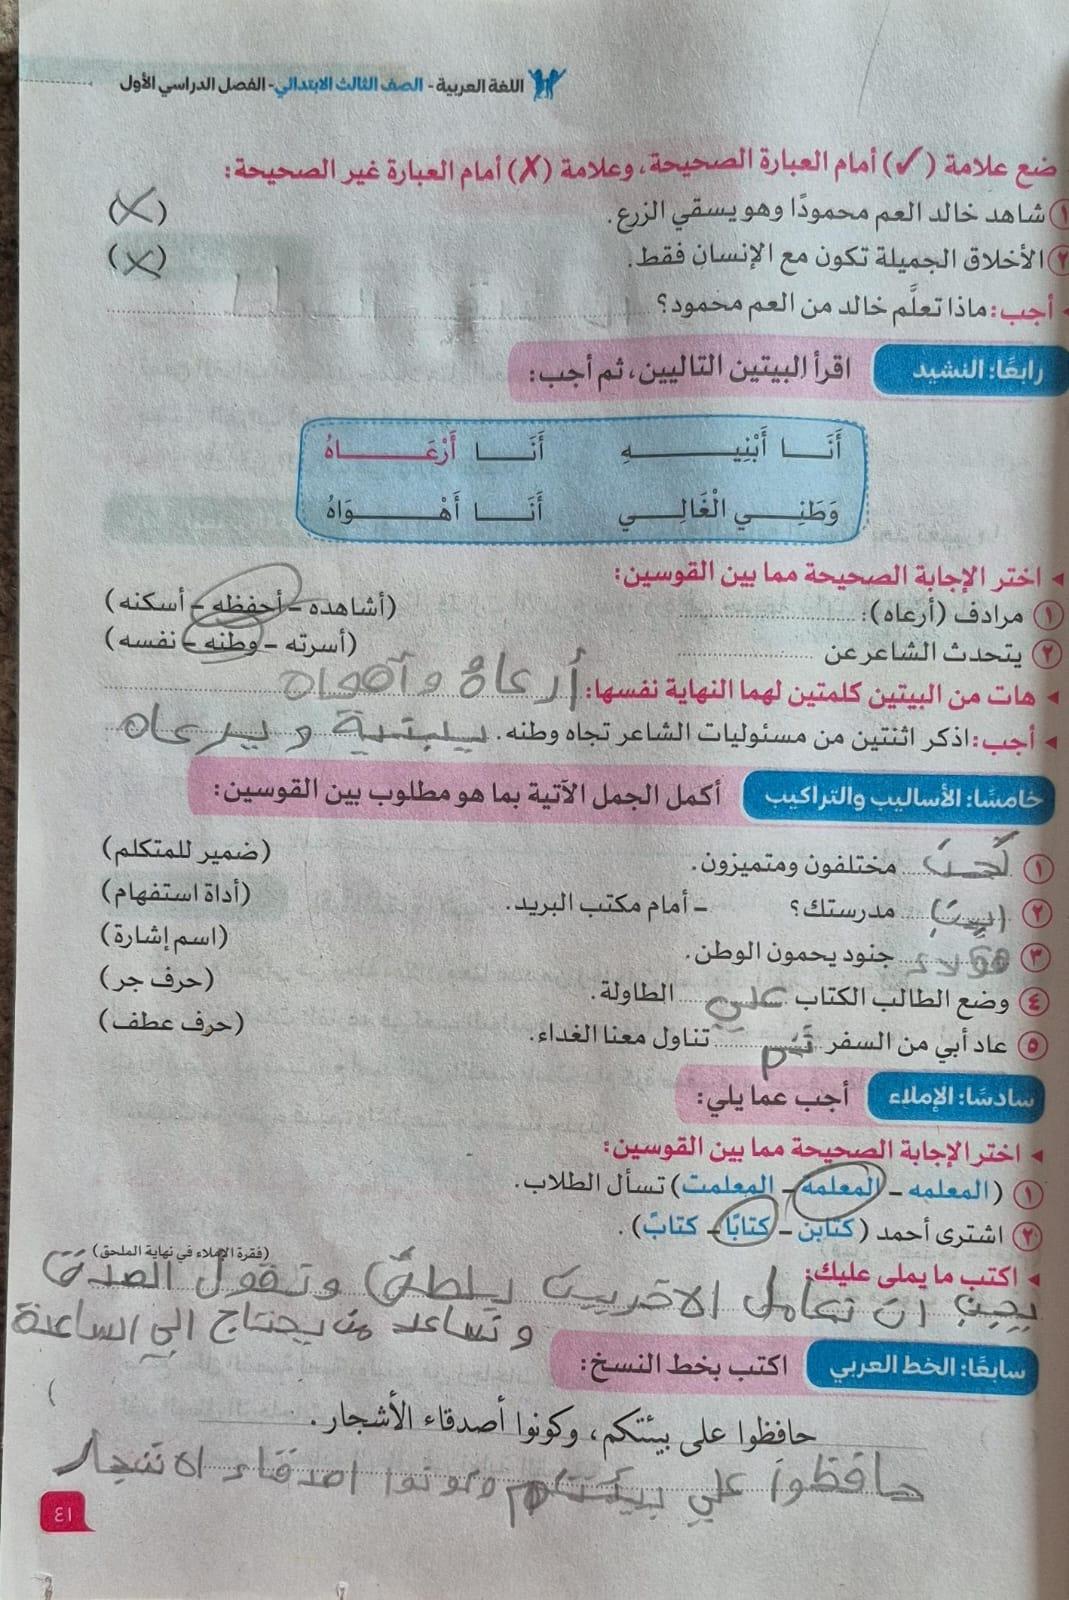 اللغة العربية - الصف الثالث الابتدائي - الفصل الدراسي الأول
ضع علامة (✓) أمام العبارة الصحيحة، وعلامة (✗) أمام العبارة غير الصحيحة:
١ شاهد خالد العم محمودًا وهو يسقي الزرع. (✗)
٢ الأخلاق الجميلة تكون مع الإنسان فقط. (✗)
أجب: ماذا تعلَّم خالد من العم محمود؟
رابعًا: النشيد اقرأ البيتين التاليين، ثم أجب:
أَنَـــا أَبْنِيـــــــــهِ أَنَـــا أَرْعَـــــــــاهُ
وَطَنِـــي الْغَالِـــي أَنَـــا أَهْـــــــوَاهُ
اختر الإجابة الصحيحة مما بين القوسين:
١ مرادف (أرعاه): (أشاهده - أحفظه - أسكنه)
٢ يتحدث الشاعر عن (أسرته - وطنه - نفسه)
هات من البيتين كلمتين لهما النهاية نفسها: أرعاهُ و أهواه
أجب: اذكر اثنتين من مسئوليات الشاعر تجاه وطنه. و يرعاه
خامسًا: الأساليب والتراكيب أكمل الجمل الآتية بما هو مطلوب بين القوسين:
١ مختلفون ومتميزون. (ضمير للمتكلم)
٢ مدرستك؟ - أمام مكتب البريد. (أداة استفهام)
٣ هؤلاء جنود يحمون الوطن. (اسم إشارة)
٤ وضع الطالب الكتاب علي الطاولة. (حرف جر)
٥ عاد أبي من السفر ثم تناول معنا الغداء. (حرف عطف)
سادسًا: الإملاء أجب عما يلي:
اختر الإجابة الصحيحة مما بين القوسين:
١ (المعلمه - المعلمة - المعلمت) تسأل الطلاب.
٢ اشترى أحمد (كتابن - كتابًا - كتابً).
اكتب ما يملى عليك: (فقرة الإملاء في نهاية الملحق)
يجب ان تعامل الاخرين و تقول الصدق
و تساعد من يحتاج الي الساعدة
سابعًا: الخط العربي اكتب بخط النسخ:
حافظوا على بيئتكم، وكونوا أصدقاء الأشجار.
حافظوا علي بيئتكم وكونوا اصدقاء الاشجار
٤١